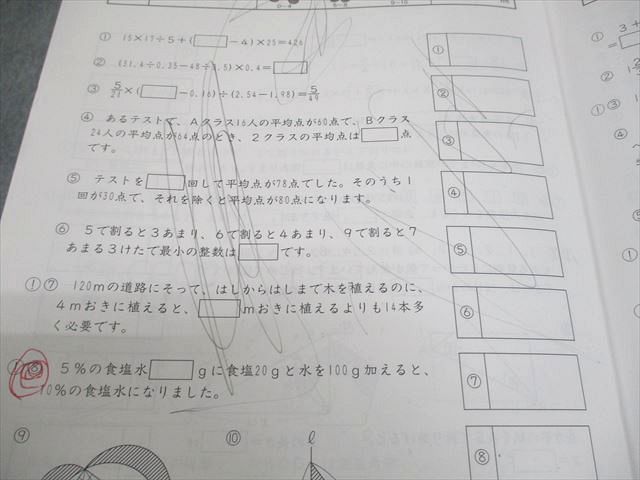 ① 15×17÷5+(□-4)×25=426
② (31.4÷0.35-48÷1.5)×0.4=□
③ ×(□-0.16)÷(2.54-1.98)=
④ あるテストで、Aクラス16人の平均点が60点で、Bクラス
24人の平均点が64点のとき、2クラスの平均点は□点
です。
⑤ テストを□回して平均点が78点でした。そのうち1
回が30点で、それを除くと平均点が80点になります。
⑥ 5で割ると3あまり、6で割ると4あまり、9で割ると7
あまる3けたで最小の整数は□です。
①⑦ 120mの道路にそって、はしからはしまで木を植えるのに、
4mおきに植えると、□mおきに植えるよりも14本多
く必要です。
⑧ 5%の食塩水□gに食塩20gと水を100g加えると、
10%の食塩水になりました。
⑨
⑩
ℓ
①
②
③
④
⑤
⑥
⑦
⑧
① 3+
②
①③
④